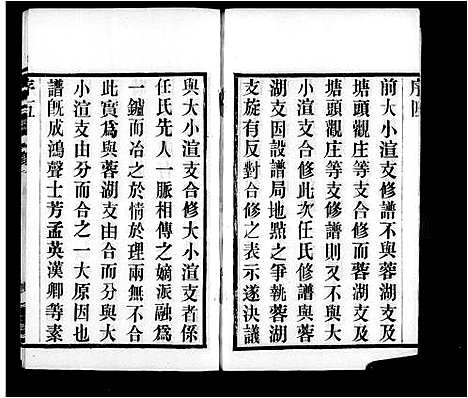 序四
前大小渲支修譜不與蓉湖支及
塘頭觀庄等支合修而蓉湖支及
塘頭觀庄等支修譜則又不與大
小渲支合修此次任氏修譜與蓉
湖支因設譜局地點之爭執蓉湖
支旋有反對合修之表示遂決議
與大小渲支合修大小渲支者係
任氏先人一脈相傳之嫡派融為
一鑪而冶之於情於理兩無不合
此實為與蓉湖支由合而分與大
小渲支由分而合之一大原因也
譜旣成鴻聲士芳孟英漢卿等素
序五